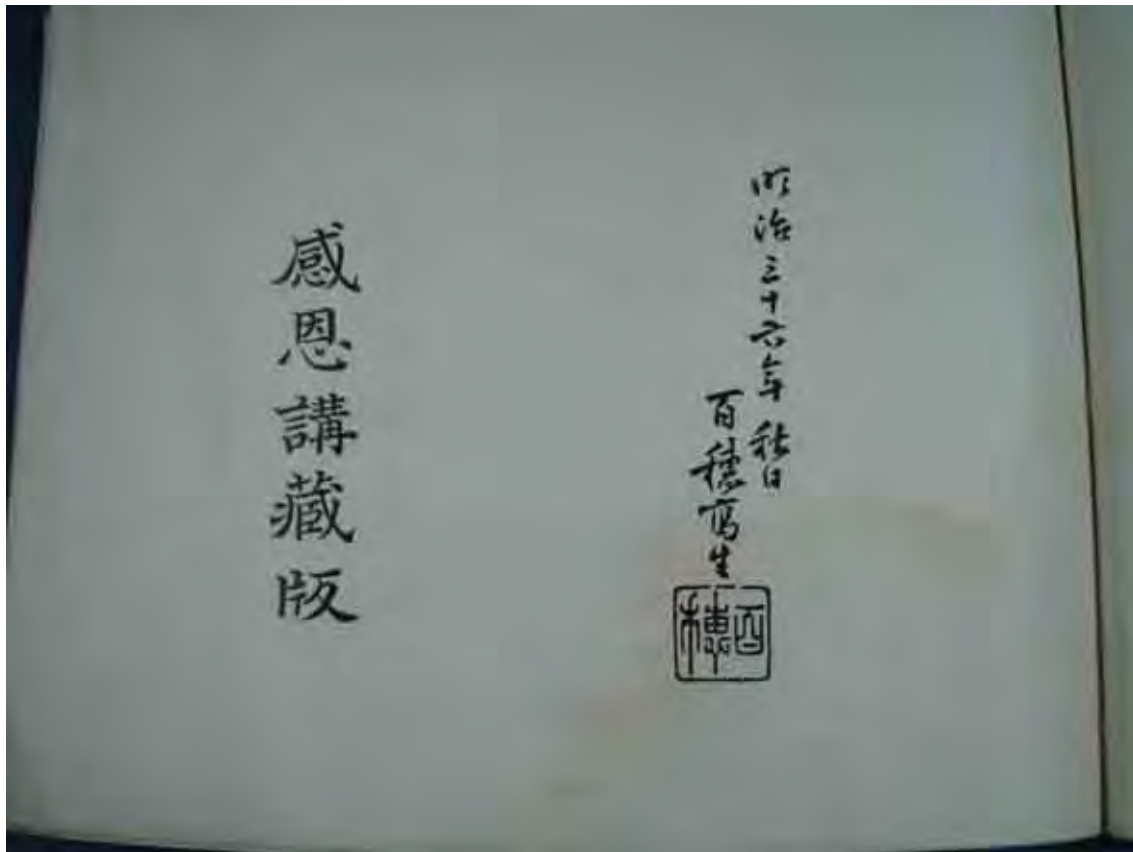 明治三十六年秋日
百穂寫生
百穗
感恩講藏版